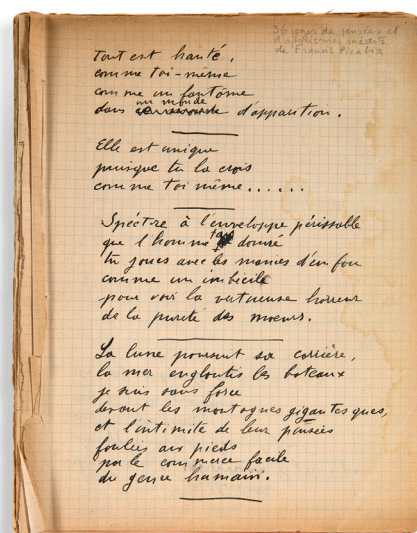 36 pages de pensées et
d'aphorismes inédits
de Francis Picabia
Tout est hanté,
comme toi-même
comme un fantôme
dans un monde d'apparition.
Elle est unique
puisque tu la crois
comme toi même......
Spéctre à l'enveloppe périssable
que l'homme t'a donné
tu joues avec les manies d'un fou
comme un imbécile
pour voir la vertueuse horreur
de la pureté des moeurs.
La lune poursuit sa carrière,
la mer engloutis les bateaux
je suis sans force
devant les montagnes gigantesques,
et l'intimité de leur pensées
foulées aux pieds
par le commerce facile
du genre humain.